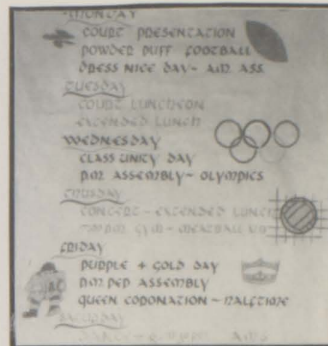 MONDAY
COURT PRESENTATION
POWDER PUFF FOOTBALL
DRESS NICE DAY~ A.M. ASS.
TUESDAY
COURT LUNCHEON
EXTENDED LUNCH
WEDNESDAY
CLASS UNITY DAY
P.M. ASSEMBLY~ OLYMPICS
THURSDAY
CONCERT - EXTENDED LUNCH
GYM - MEATBALL
FRIDAY
PURPLE + GOLD DAY
P.M. PEP ASSEMBLY
QUEEN CORONATION ~ HALFTIME
SATURDAY
DANCE